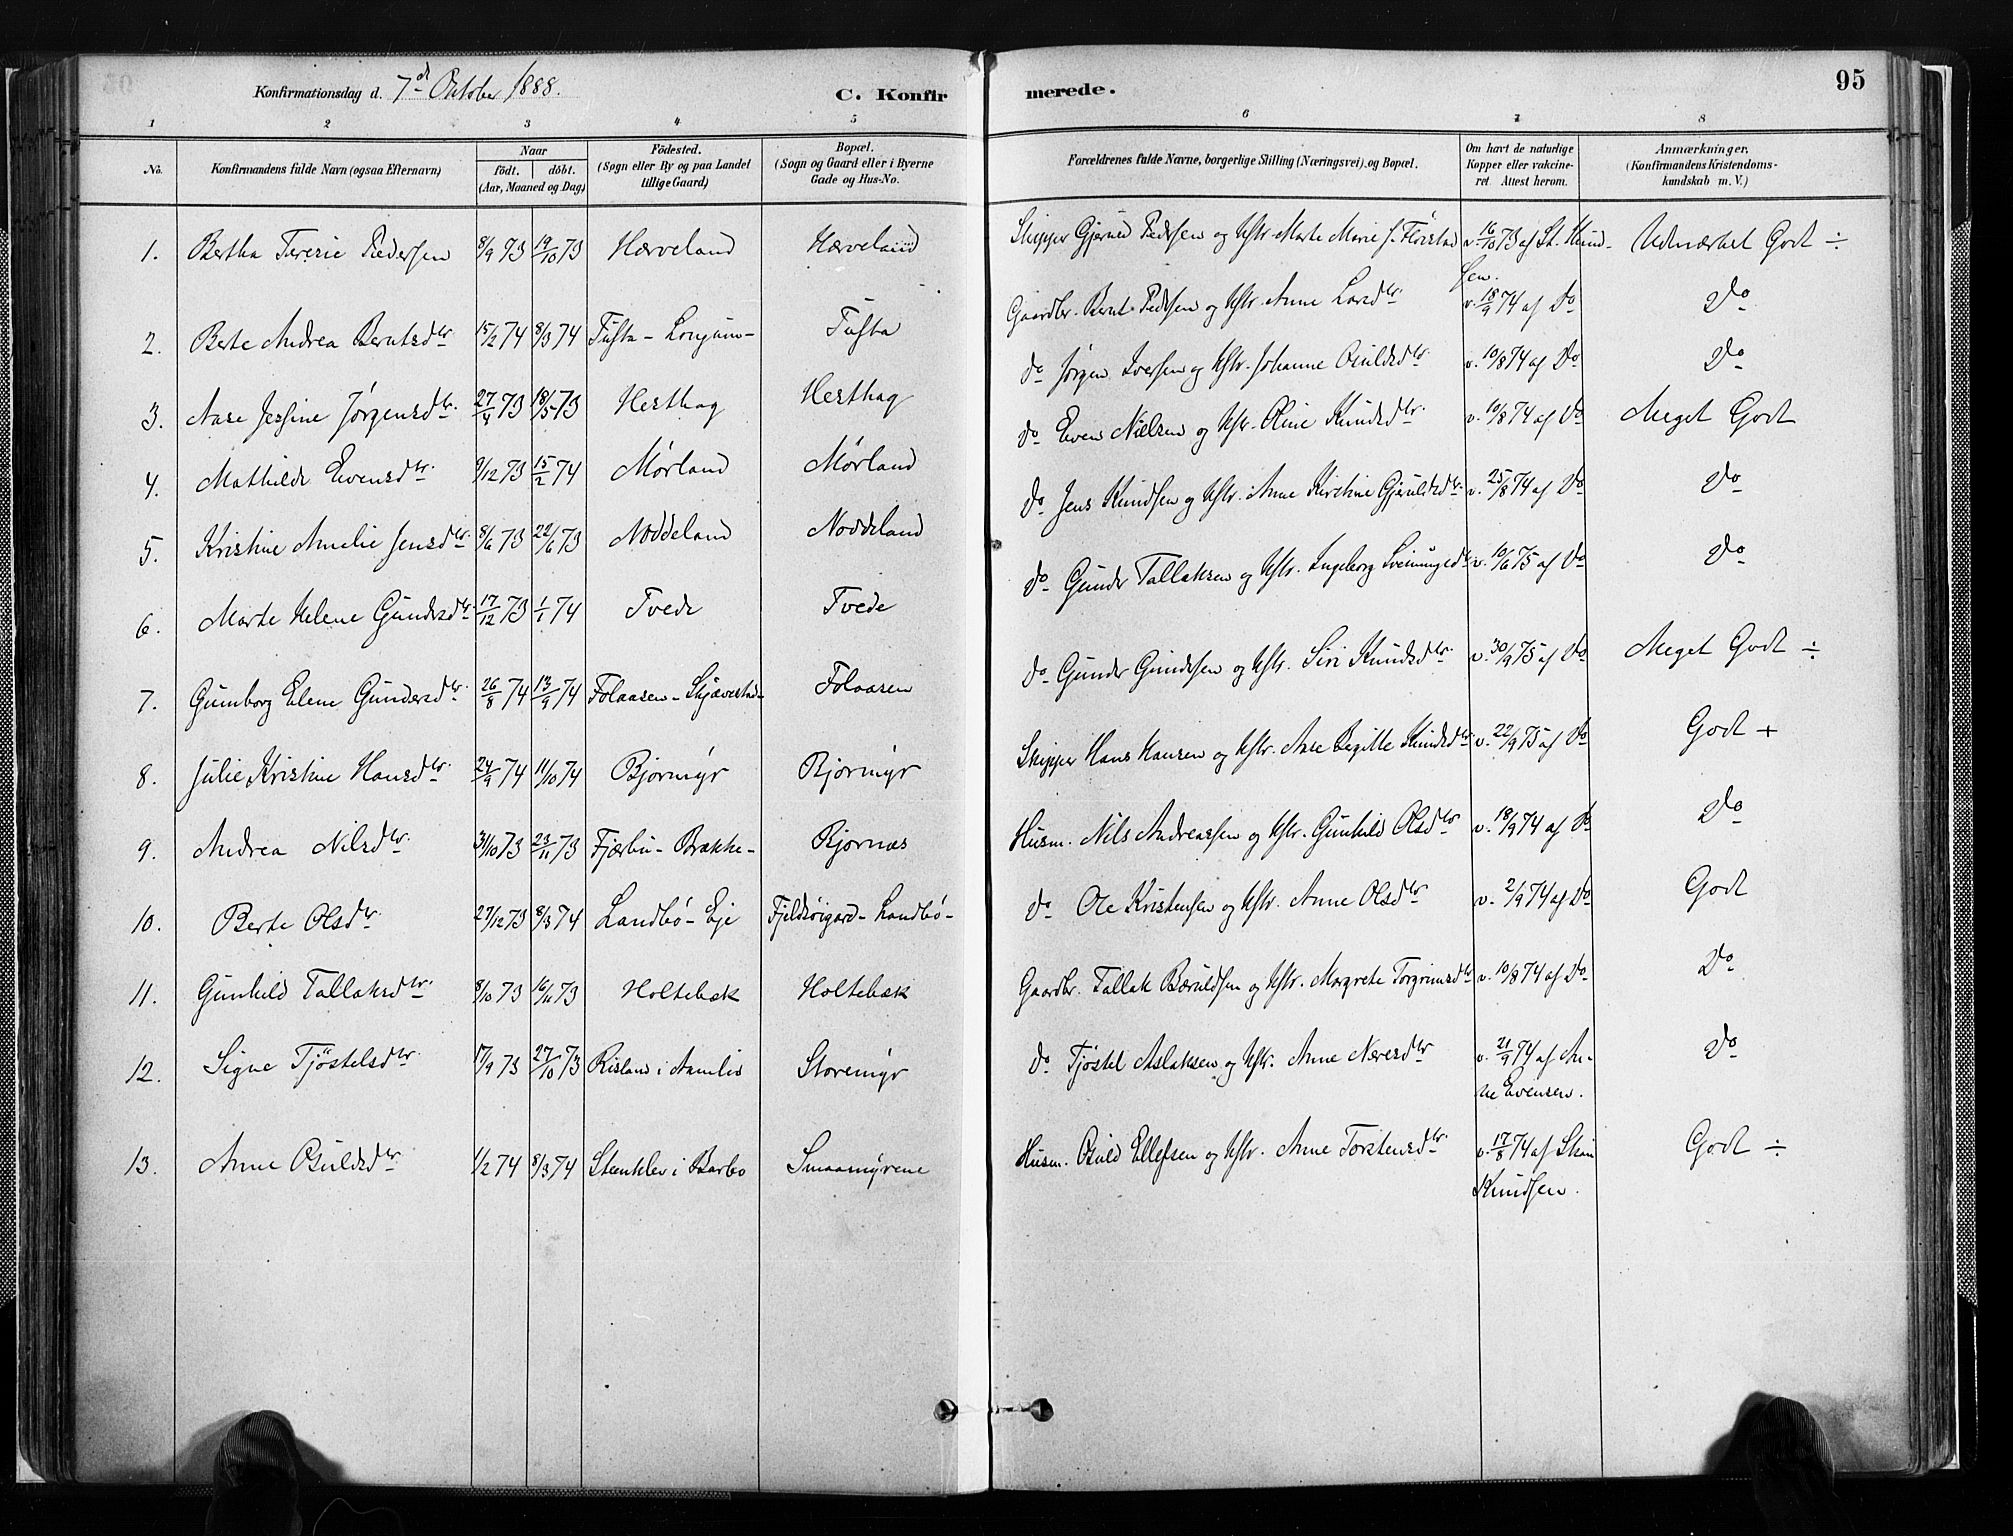 Konfirmationsdag d. 7de Oktober 1888.
C. Konfirmerede.
95
1 2 3 4 5 6 7 8
No.
Konfirmandens fulde Navn (ogsaa Efternavn)
Naar
födt. döbt.
(Aar, Maaned og Dag)
Födested.
(Sogn eller By og paa Landet
tillige Gaard)
Bopæl.
(Sogn og Gaard eller i Byerne
Gade og Hus-No.
Forældrenes fulde Navne, borgerlige Stilling (Næringsvei), og Bopæl.
Om havt de naturlige
Kopper eller vakcine-
ret. Attest herom.
Anmærkninger,
(Konfirmandens Kristendoms-
kundskab m. V.)
1. Bertha Teresie Pedersen 8/9 73 19/10 73 Hærveland Hærveland Skipper Pedersen og Hstr. Marte Marie f. Flöistad v. 16/10 73 af St. Knud- Udmærket Godt ÷
sen.
2. Berte Andrea Berntsdtr 15/2 74 8/3 74 Tufta - Longum - Tufta Gaardbr. Bernt Pedersen og Hstr. Anne Larsdtr v. 18/9 74 af Do Do
3. Aase Jessine Jørgensdtr. 27/4 73 18/5 73 Hesthag Hesthag do Jørgen Iversen og Hstr. Johanne Osuldsdtr. v. 10/8 74 af Do Do
4. Mathilde Evensdtr. 9/12 73 15/2 74 Mørland Mørland do Even Nielsen og Hstr. Oline Knudsdtr. v. 10/8 74 af Do Meget Godt
5. Kristine Amelie Jensdtr. 8/6 73 22/6 73 Noddeland Noddeland do Jens Knudsen og Hstr. Anne Kirstine Gjeruldsdtr. v. 25/8 74 af Do Do
6. Marte Helene Gundersdtr. 17/12 73 1/1 74 Tvede Tvede do Gunder Tallaksen og Hstr. Ingeborg Sveinungsdtr v. 10/6 75 af Do Do
7. Gumborg Elene Gundersdtr. 26/8 74 13/9 74 Folaasen - Skjævestad - Folaasen do Gunder Gundersen og Hstr. Siri Knudsdtr. v. 30/9 75 af Do Meget Godt ÷
8. Julie Kristine Hansdtr. 24/9 74 11/10 74 Bjormyr Bjormyr Skipper Hans Hansen og Hstr. Aase Begitte Knudsdtr. v. 22/9 75 af Do Godt +
9. Andrea Nilsdtr. 31/10 73 23/11 73 Fjærbu - Brække - Bjornæs Husm. Nils Andreassen og Hstr. Gunhild Olsdtr v. 18/9 74 af Do Do
10. Berte Olsdtr. 27/12 73 8/3 74 Landbö - Eje Landbö - do Ole Kristensen og Hstr. Anne Olsdtr v. 2/9 74 af Do Godt
11. Gunhild Tallaksdtr. 8/10 73 16/11 73 Holtebæk Holtebæk Gaardbr. Tallak Bæruldsen og Hstr. Margrete Torgrimsdtr v. 10/8 74 af Do Do
12. Signe Tjöstelsdtr. 17/9 73 27/10 73 Risland i Aamlid Storemyr do Tjöstel Aslaksen og Hstr. Anne Næresdtr v. 21/9 74 af An- Do
ne Evensen.
13. Anne Osuldsdtr 1/2 74 8/3 74 Stenklev i Barbo Smaamyrene Husm. Osuld Ellefsen og Hstr. Anne Torstensdtr. v. 17/8 74 af Godt ÷
Knudsen.